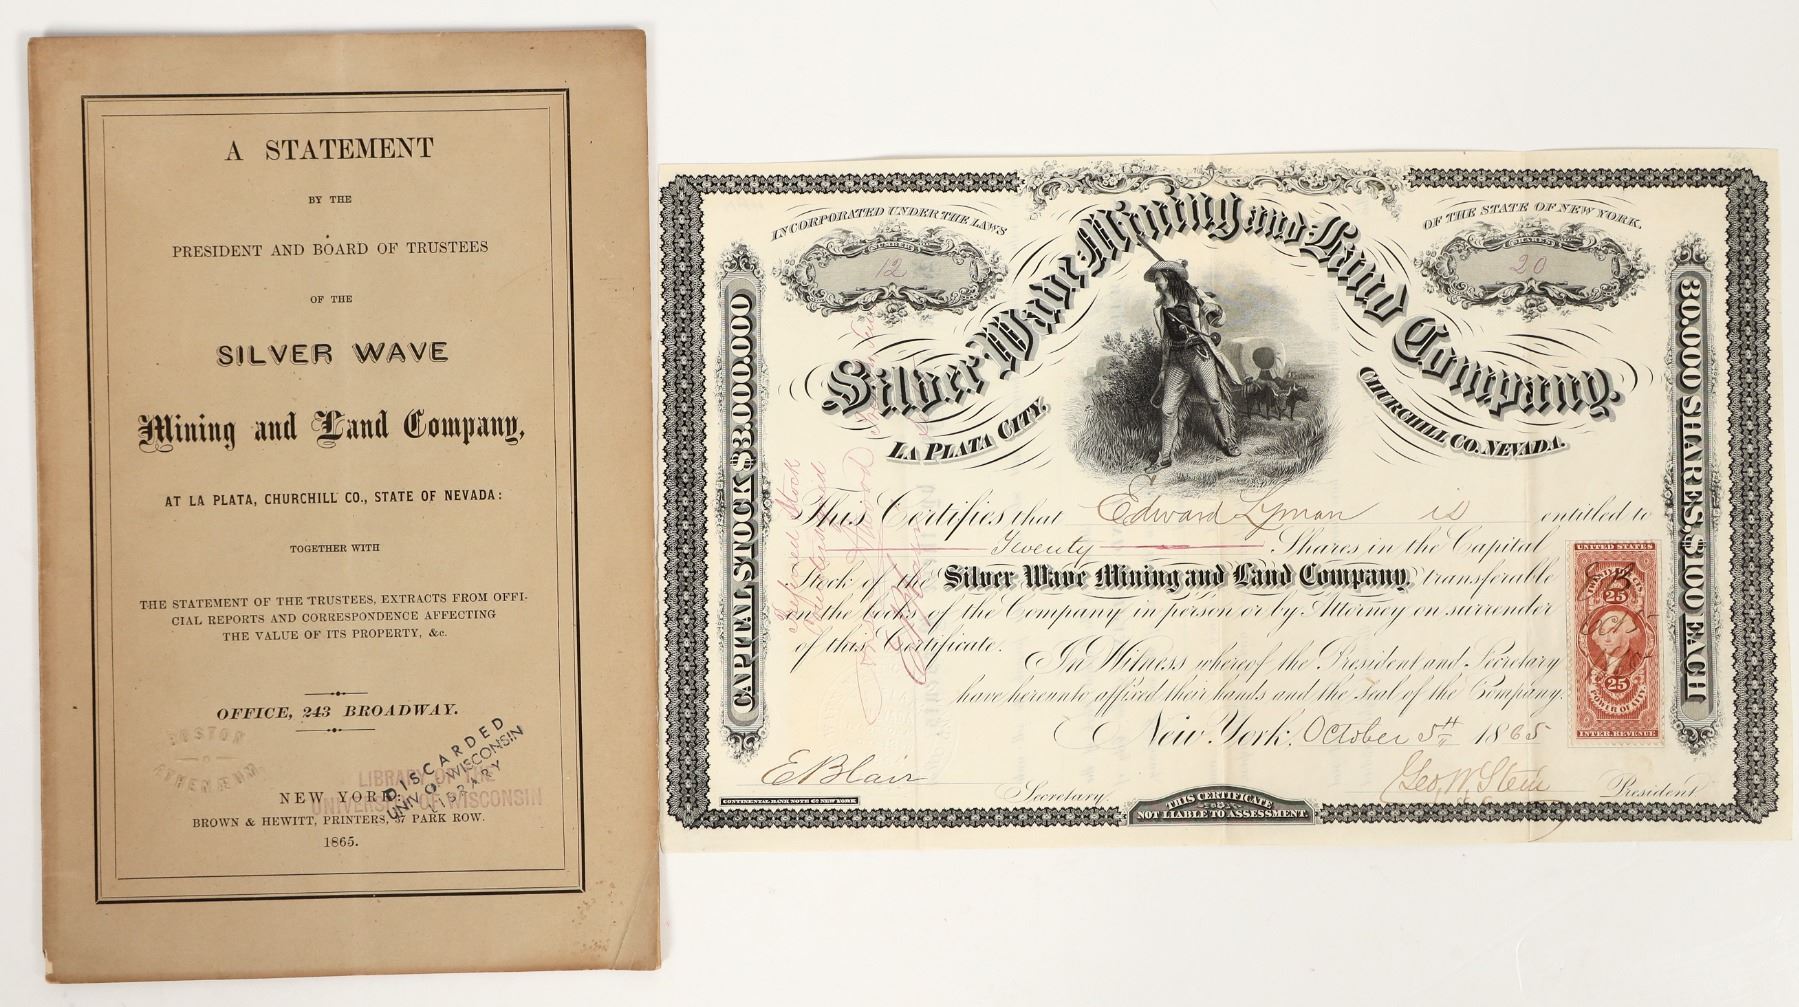 A STATEMENT
BY THE
PRESIDENT AND BOARD OF TRUSTEES
OF THE
SILVER WAVE
Mining and Land Company,
AT LA PLATA, CHURCHILL CO., STATE OF NEVADA:
TOGETHER WITH
THE STATEMENT OF THE TRUSTEES, EXTRACTS FROM OFFI-
CIAL REPORTS AND CORRESPONDENCE AFFECTING
THE VALUE OF ITS PROPERTY, &c.
OFFICE, 243 BROADWAY.
BOSTON
ATHENÆUM
DISCARDED
UNIV OF WISCONSIN
LIBRARY
LIBRARY OF THE
UNIVERSITY OF WISCONSIN
NEW YORK
BROWN & HEWITT, PRINTERS, 37 PARK ROW.
1865.
INCORPORATED UNDER THE LAWS
OF THE STATE OF NEW YORK.
NUMBER
12
SHARES
20
Silver Wave Mining and Land Company.
LA PLATA CITY,
CHURCHILL CO. NEVADA.
CAPITAL STOCK $3,000,000
30,000 SHARES, $100 EACH
This Certifies that Edward Lyman is entitled to
Twenty Shares in the Capital
Stock of the Silver Wave Mining and Land Company, transferable
on the books of the Company in person or by Attorney on surrender
of this Certificate.
In Witness whereof the President and Secretary
have hereunto affixed their hands and the seal of the Company.
New York, October 5th 1865
E Blair Secretary.
Geo. W. Stein President
CONTINENTAL BANK NOTE CO. NEW YORK
THIS CERTIFICATE
IS
NOT LIABLE TO ASSESSMENT.
UNITED STATES
25
Oct 5
25
POWER OF ATT'Y
INTER. REVENUE
Stock